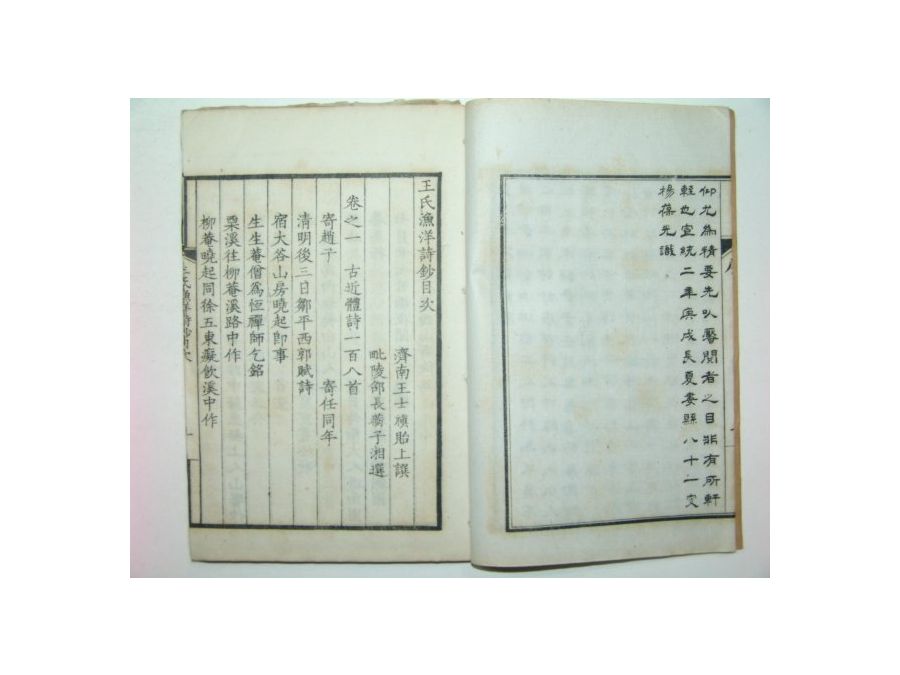 仰尤為精要先以饜閱者之目非有所軒
輊也宣統二年庚戌長夏婁縣八十一叟
楊葆光識
王氏漁洋詩鈔目次
濟南王士禛貽上譔
毗陵邵長蘅子湘選
卷之一 古近體詩一百八首
寄趙子 寄任同年
清明後三日鄒平西郭賦詩
宿大谷山房曉起卽事
生生菴僧為恆禪師乞銘
栗溪往柳菴溪路中作
柳菴曉起同徐五東癡飲溪中作
王氏漁洋詩鈔目次 一